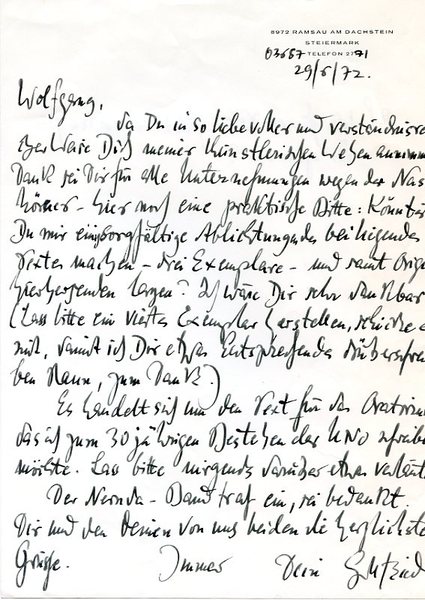 8972 RAMSAU AM DACHSTEIN
STEIERMARK
03687 TELEFON 2771
29/6/72.
Wolfgang,
da Du in so liebevoller und verständnisre
Dich meiner künstlerischen Wesen annimm
Dank sei Dir für alle Unternehmungen wegen der Nas
hörner - hier noch eine praktische Bitte: Könntes
Du mir sorgfältige Ablichtung des beiliegenden
Textes machen - drei Exemplare - und samt Orig
hierhersenden lassen? Ich wäre Dir sehr dankbar
(Lass bitte ein viertes Exemplar herstellen, schicke e
mit, damit ich Dir etwas Entsprechendes drüberschrei
ben kann, zum Dank.)
Es handelt sich um den Text für das Oratorium
das ich zum 30 jährigen Bestehen der UNO schreibe
möchte. Lass bitte nirgends darüber etwas verlaut
Der Neruda-Band traf ein, sei bedankt.
Dir und den Deinen von uns beiden die herzlichste
Grüße. Immer Dein Gottfried